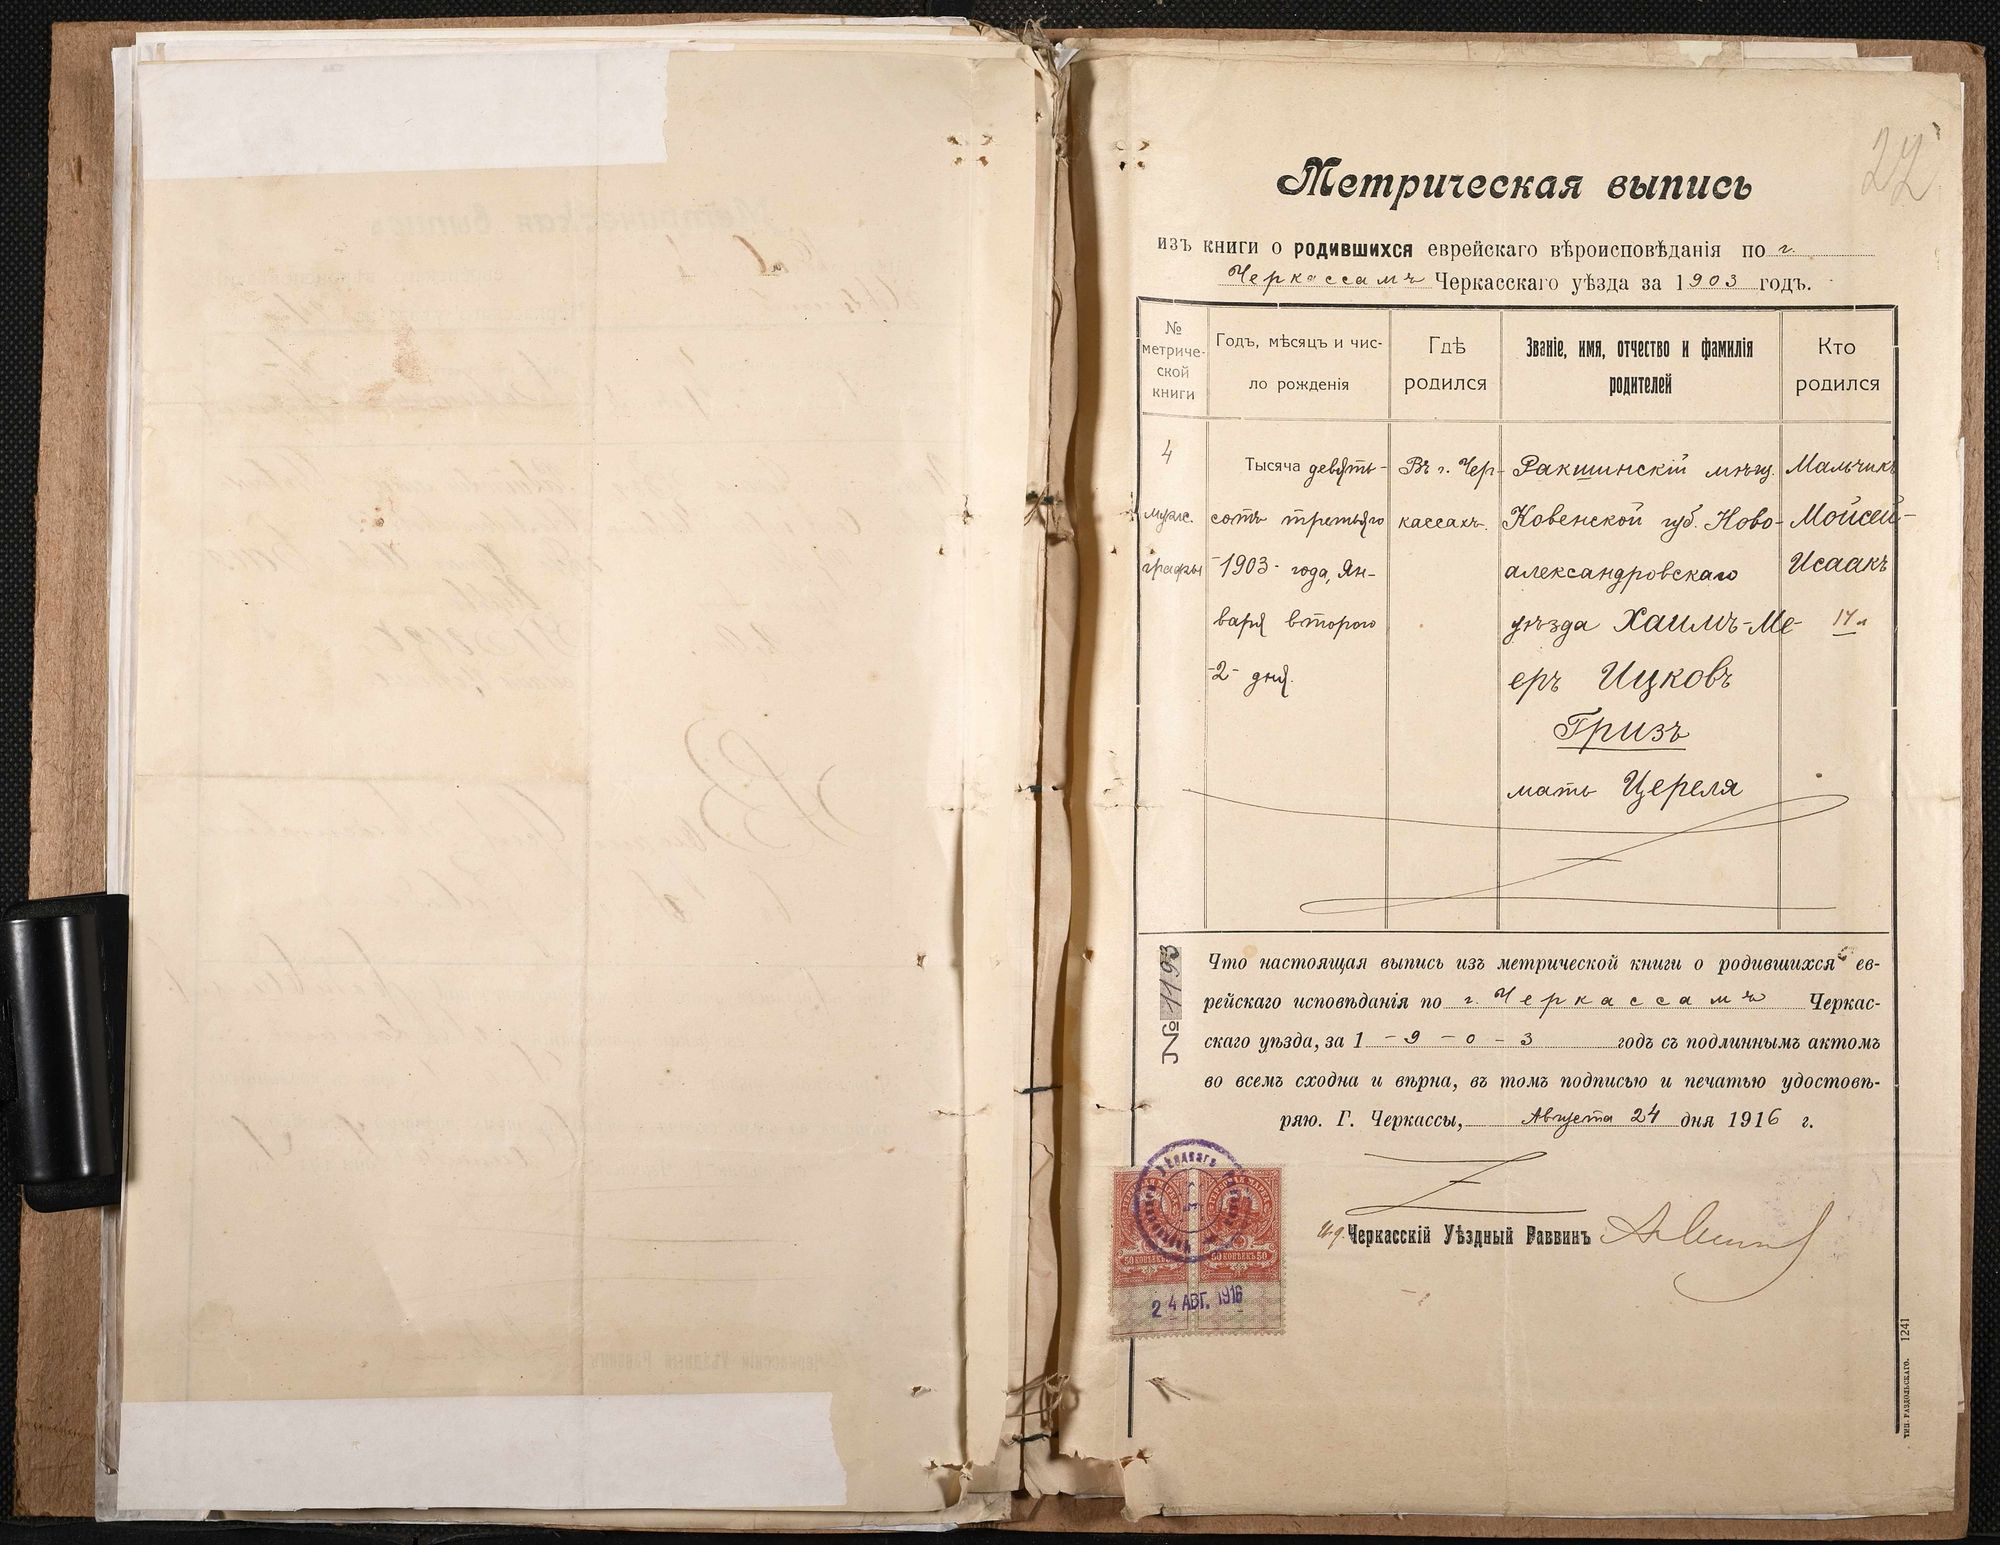 22
Метрическая выпись
изъ книги о родившихся еврейскаго вѣроисповѣданія по г.
Черкассамъ Черкасскаго уѣзда за 1903 годъ.
№ метриче-ской книги
Годъ, мѣсяцъ и чис-ло рожденія
Гдѣ родился
Званіе, имя, отчество и фамилія родителей
Кто родился
4
муже.
графы
Тысяча девять-
сотъ третьяго
-1903- года, Ян-
варя второго
-2- дня.
Въ г. Чер-
кассахъ.
Ракшинскій мѣщ.
Ковенской губ. Ново-
александровскаго
уѣзда Хаимъ-Ме-
еръ Ицковъ
Гризъ
мать Цереля
Мальчикъ
Мойсей-
Исаакъ
№ 1193
Что настоящая выпись изъ метрической книги о родившихся ев-
рейскаго исповѣданія по г. Черкассамъ Черкас-
скаго уѣзда, за 1 - 9 - 0 - 3 годъ съ подлиннымъ актомъ
во всемъ сходна и вѣрна, въ томъ подписью и печатью удостовѣ-
ряю. Г. Черкассы, Августа 24 дня 1916 г.
И.д. Черкасскій Уѣздный Раввинъ
ГЕРБОВАЯ МАРКА ГЕРБОВАЯ МАРКА
50 КОПѢЕКЪ 50
24 АВГ. 1916
ТИП. РАЗДОЛЬСКАГО. 1241